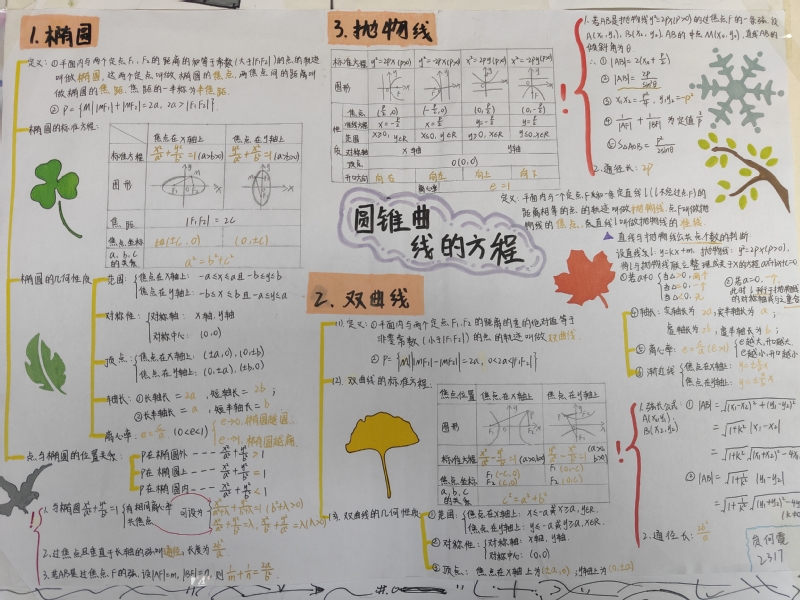 1. 椭圆
定义: ①平面内与两个定点F₁, F₂的距离的和等于常数(大于|F₁F₂|)的点的轨迹
叫做椭圆, 这两个定点叫做椭圆的焦点, 两焦点间的距离叫
做椭圆的焦距, 焦距的一半称为半焦距.
② P={M||MF₁|+|MF₂|=2a, 2a>|F₁F₂|}
椭圆的标准方程:
焦点在x轴上 焦点在y轴上
标准方程 x²/a²+y²/b²=1(a>b>0)
图形
焦距 |F₁F₂|=2c
焦点坐标 (±c, 0) (0, ±c)
a, b, c的关系 a²=b²+c²
椭圆的几何性质
范围: 焦点在x轴上: -a≤x≤a且-b≤y≤b
焦点在y轴上: -b≤x≤b且-a≤y≤a
对称性: 对称轴: x轴, y轴
对称中心: (0,0)
顶点: 焦点在x轴上: (±a,0), (0,±b)
焦点在y轴上: (0,±a), (±b,0)
轴长: ①长轴长=2a, 短轴长=2b;
②长半轴长=a, 短半轴长=b
离心率: e=c/a (0<e<1)
e→0, 椭圆越圆
e→1, 椭圆越扁
点与椭圆的位置关系:
P在椭圆外 --- x²/a²+y²/b²>1
P在椭圆上 --- x²/a²+y²/b²=1
P在椭圆内 --- x²/a²+y²/b²<1
1. 与椭圆x²/a²+y²/b²=1 有相同离心率 可设为
共焦点
2. 过焦点且垂直于长轴的弦叫通径, 长度为2b²/a
3. 若AB是过焦点F的弦, 设|AF|=m, |BF|=n, 则1/m+1/n=2a/b²
3. 抛物线
标准方程 y²=2px(p>0) y²=-2px(p>0) x²=2py(p>0) x²=-2py(p>0)
图形
性质
焦点 (p/2, 0) (-p/2, 0) (0, p/2) (0, -p/2)
准线方程 x=-p/2 x=p/2 y=-p/2 y=p/2
范围 x≥0, y∈R x≤0, y∈R y≥0, x∈R y≤0, x∈R
对称轴 x轴 y轴
顶点 O(0,0)
开口方向 向右 向左 向上 向下
离心率 e=1
定义: 平面内与一个定点F和一条定直线l(l不经过点F)的
距离相等的点的轨迹叫做抛物线, 点F叫做抛
物线的焦点, 直线l叫做抛物线的准线.
圆锥曲
线的方程
1. 若AB是抛物线y²=2px(p>0)的过焦点F的一条弦, 设
A(x₁,y₁), B(x₂,y₂), AB的中点M(x₀,y₀), 直线AB的
倾斜角为θ
∴ ① |AB|=2(x₀+p/2)
② |AB|=2p/sin²θ
③ x₁x₂=p²/4, y₁y₂=-p²
④ 1/|AF|+1/|BF| 为定值2/p
⑤ S△AOB=p²/2sinθ
2. 通径长: 2p
直线与抛物线公共点个数的判断:
设直线l: y=kx+m, 抛物线: y²=2px(p>0),
将l与抛物线联立整理成关于x的方程ax²+bx+c=0
①若a≠0 当△>0, 两个
当△=0, 一个
当△<0, 无
②若a=0, 一个,
此时l平行于抛物线
的对称轴或与之重合
2. 双曲线
(1). 定义: ①平面内与两个定点F₁, F₂的距离的差的绝对值等于
非零常数(小于|F₁F₂|)的点的轨迹叫做双曲线.
② P={M|||MF₁|-|MF₂||=2a, 0<2a<|F₁F₂|}
(2). 双曲线的标准方程.
焦点位置 焦点在x轴上 焦点在y轴上
图形
标准方程 x²/a²-y²/b²=1(a>0, b>0) y²/a²-x²/b²=1(a>0, b>0)
焦点坐标 F₁(-c,0) F₂(c,0) F₁(0,-c) F₂(0,c)
a, b, c的关系 c²=a²+b²
(3). 双曲线的几何性质
①范围: 焦点在x轴上: x≤-a或x≥a, y∈R.
焦点在y轴上: y≤-a或y≥a, x∈R.
②对称性: 对称轴: x轴, y轴.
对称中心: (0,0)
③顶点: 焦点在x轴上为(±a,0), y轴上为(0,±a)
④轴长: 实轴长为2a, 实半轴长为a;
虚轴长为2b, 虚半轴长为b;
⑤离心率: e=c/a(e>1) e越大, 开口越大
e越小, 开口越小
⑥渐近线 焦点在x轴: y=±b/a x
焦点在y轴: y=±a/b x
1. 弦长公式:
A(x₁,y₁)
B(x₂,y₂)
① |AB|=√(x₁-x₂)²+(y₁-y₂)²
=√1+k² |x₁-x₂|
② |AB|=√1+1/k² |y₁-y₂|
2. 通径长: 2b²/a
2317